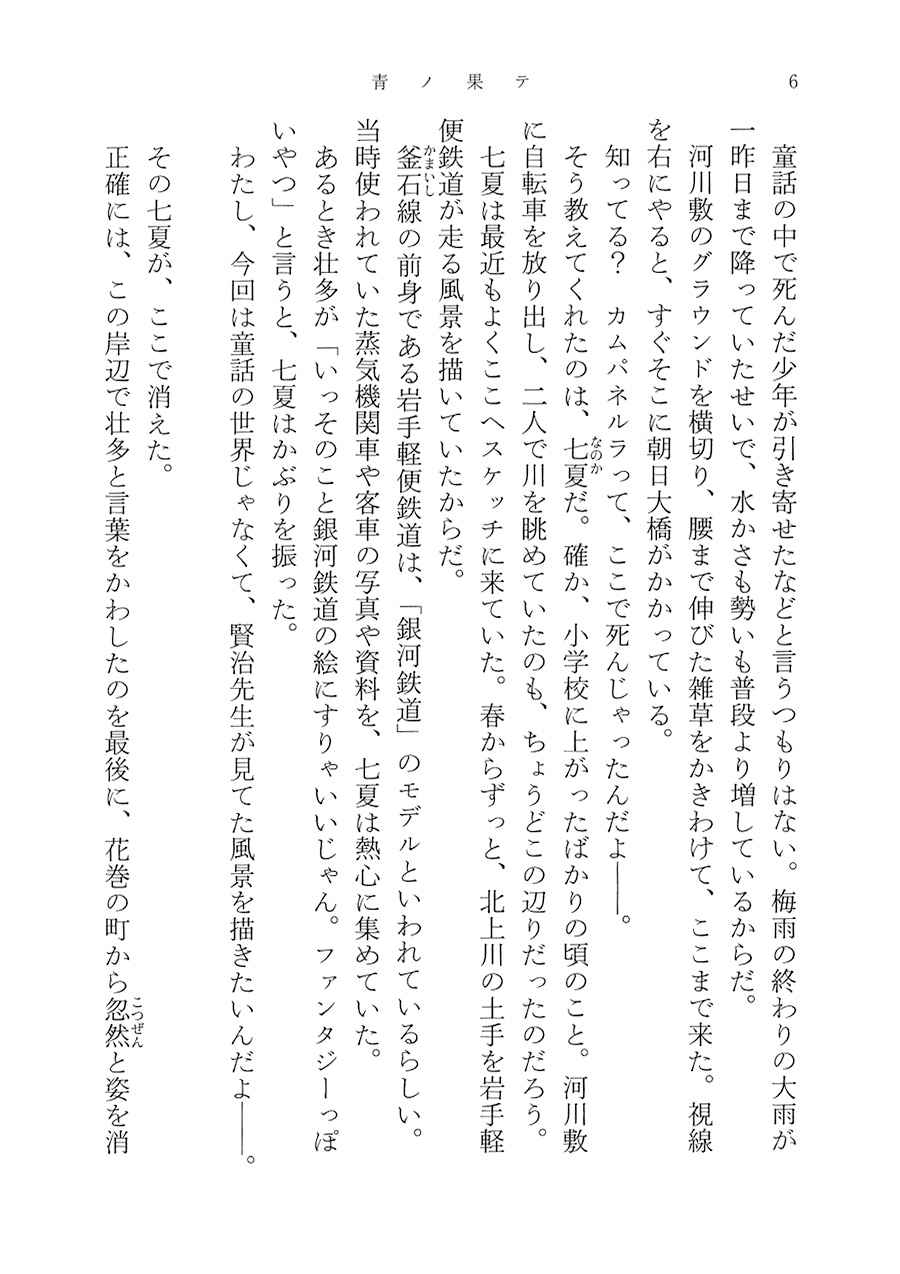 青ノ果テ
6
童話の中で死んだ少年が引き寄せたなどと言うつもりはない。梅雨の終わりの大雨が
一昨日まで降っていたせいで、水かさも勢いも普段より増しているからだ。
河川敷のグラウンドを横切り、腰まで伸びた雑草をかきわけて、ここまで来た。視線
を右にやると、すぐそこに朝日大橋がかかっている。
知ってる？　カムパネルラって、ここで死んじゃったんだよ――。
そう教えてくれたのは、七夏なのかだ。確か、小学校に上がったばかりの頃のこと。河川敷
に自転車を放り出し、二人で川を眺めていたのも、ちょうどこの辺りだったのだろう。
七夏は最近もよくここへスケッチに来ていた。春からずっと、北上川の土手を岩手軽
便鉄道が走る風景を描いていたからだ。
釜石かまいし線の前身である岩手軽便鉄道は、「銀河鉄道」のモデルといわれているらしい。
当時使われていた蒸気機関車や客車の写真や資料を、七夏は熱心に集めていた。
あるとき壮多が「いっそのこと銀河鉄道の絵にすりゃいいじゃん。ファンタジーっぽ
いやつ」と言うと、七夏はかぶりを振った。
わたし、今回は童話の世界じゃなくて、賢治先生が見てた風景を描きたいんだよ――。
その七夏が、ここで消えた。
正確には、この岸辺で壮多と言葉をかわしたのを最後に、花巻の町から忽然こつぜんと姿を消